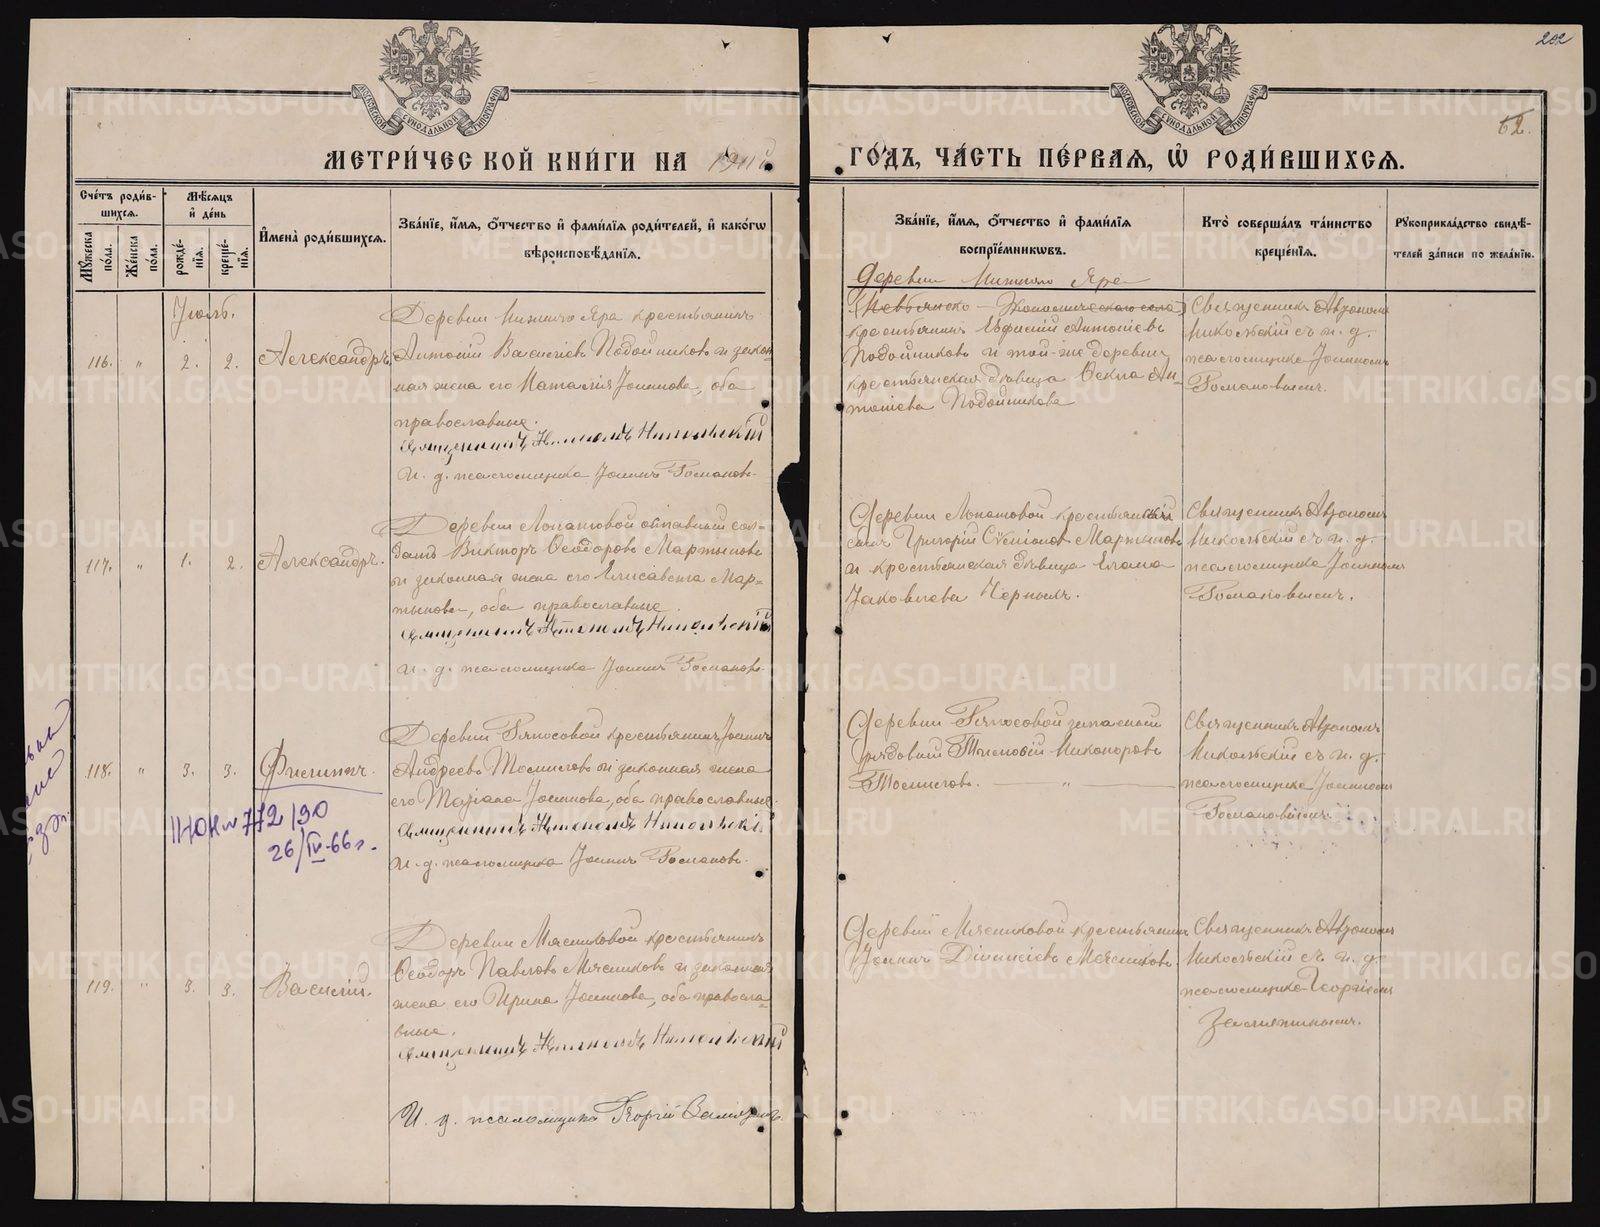 202
62.
МОСКОВСКОЙ СѴНОДАЛЬНОЙ ТИПОГРАФІИ
МОСКОВСКОЙ СѴНОДАЛЬНОЙ ТИПОГРАФІИ
МЕТРИ́ЧЕСКОЙ КНИ́ГИ НА 1911
ГО́ДЪ, ЧА́СТЬ ПЕ́РВАЯ, Ѡ҆ РОДИ́ВШИХСЯ.
Сче́тъ роди́в-
шихся.
Мꙋ́жеска по́ла.
Же́нска по́ла.
Мѣ́сяцъ
и҆ де́нь
рожде́-
нїя.
креще́-
нїя.
И҆мена̀ роди́вшихся.
Зва́нїе, и҆́мя, ѻ҆́тчество и҆ фами́лїя роди́телей, и҆ како́гѡ
вѣроисповѣ́данїя.
Зва́нїе, и҆́мя, ѻ҆́тчество и҆ фами́лїя
воспрїе́мникѡвъ.
Кто̀ соверша́лъ та́инство
креще́нїя.
Рꙋкоприкла́дство свидѣ́-
телей за́писи по жела́нїю.
Іюль.
116.
"
2.
2.
Александръ.
Деревни Нижняго Яра крестьянинъ
Антоній Василіевъ Подойниковъ и закон-
ная жена его Наталія Іоаннова, оба
православные.
Священникъ Автономъ Никольскій
И. д. псаломщика Іоаннъ Романовъ.
Деревни Нижняго Яра
крестьянинъ Евфимій Антоніевъ
Подойниковъ и той-же деревни
крестьянская дѣвица Ѳекла Ан-
тоніева Подойникова
Священникъ Автономъ
Никольскій съ и. д.
псаломщика Іоанномъ
Романовымъ.
117.
"
1.
2.
Александръ.
Деревни Лопатовой отставный сол-
датъ Викторъ Ѳеодоровъ Мартыновъ
и законная жена его Елисавета Мар-
тынова, оба православные.
Священникъ Автономъ Никольскій
И. д. псаломщика Іоаннъ Романовъ.
Деревни Лопатовой крестьянскій
сынъ Григорій Сѵмеоновъ Мартыновъ
и крестьянская дѣвица Елена
Іаковлева Черныхъ.
Священникъ Автономъ
Никольскій съ и. д.
псаломщика Іоанномъ
Романовымъ.
118.
"
3.
3.
Филиппъ.
772/90
26/IV-66 г.
Деревни Ряпосовой крестьянинъ Іоаннъ
Андреевъ Томиловъ и законная жена
его Іоаннова, оба православные.
Священникъ Автономъ Никольскій
И. д. псаломщика Іоаннъ Романовъ.
Деревни Ряпосовой запасный
рядовый Никаноровъ
Томиловъ.
Священникъ Автономъ
Никольскій съ и. д.
псаломщика Іоанномъ
Романовымъ.
119.
"
3.
3.
Василій.
Деревни Мясниковой крестьянинъ
Ѳеодоръ Павловъ Мясниковъ и законная
жена его Ирина Іоаннова, оба правосла-
вные.
Священникъ Автономъ Никольскій
И. д. псаломщика Георгій
Деревни Мясниковой крестьянинъ
Іоаннъ Діонисіевъ Мясниковъ.
Священникъ Автономъ
Никольскій съ и. д.
псаломщика Георгіемъ
METRIKI.GASO-URAL.RU